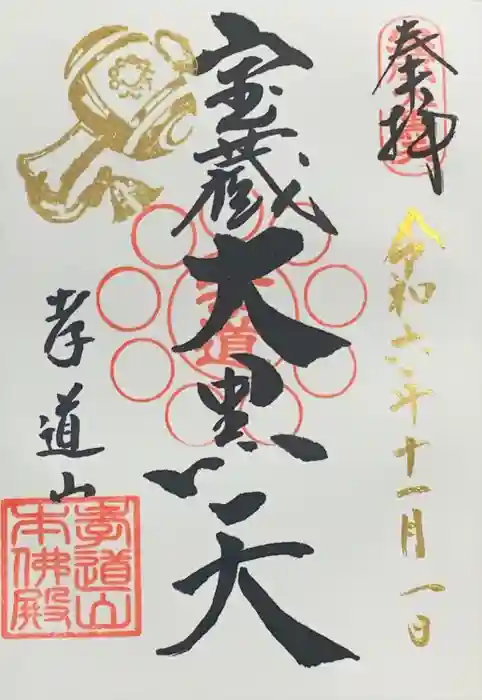 奉拝
令和六年十一月一日
宝蔵大黒天
孝道
孝道山
孝道山
本佛殿